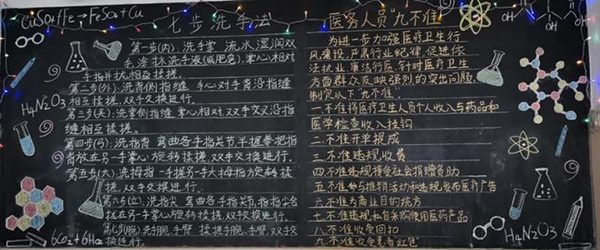 CuSO4+Fe→FeSO4+Cu
七步洗手法
第一步(内),洗手掌 流水湿润双
手,涂抹洗手液(或肥皂),掌心相对
手指并拢相互揉搓。
第二步(外),洗背侧指缝 手心对手背沿指缝
相互揉搓,双手交换进行。
第三步(夹),洗掌侧指缝 掌心相对,双手交叉沿指
缝相互揉搓。
第四步(弓),洗指背 弯曲各手指关节,半握拳把指
背放在另一手掌心旋转揉搓,双手交换进行。
第五步(大),洗拇指 一手握另一手大拇指旋转揉
搓,双手交换进行。
第六步(立),洗指尖 弯曲各手指关节,指指尖合
拢在另一手掌心旋转揉搓,双手交换进行。
第七步(腕),洗手腕、手臂 揉搓手腕、手臂,双手交
换进行。
H4N2O3
医务人员"九不准"
为进一步加强医疗卫生行
风建设,严肃行业纪律,促进依
法执业、廉洁行医,针对医疗卫生
方面群众反映强烈的突出问题,
制定以下"九不准"。
一.不准将医疗卫生人员个人收入与药品和
医学检查收入挂钩
二.不准开单提成
三.不准违规收费
四.不准违规接受社会捐赠资助
五.不准参与推销活动和违规发布医疗广告
六.不准为商业目的统方
七.不准违规私自采购使用医药产品
八.不准收受回扣
九.不准收受患者红包
H4N2O3
OH